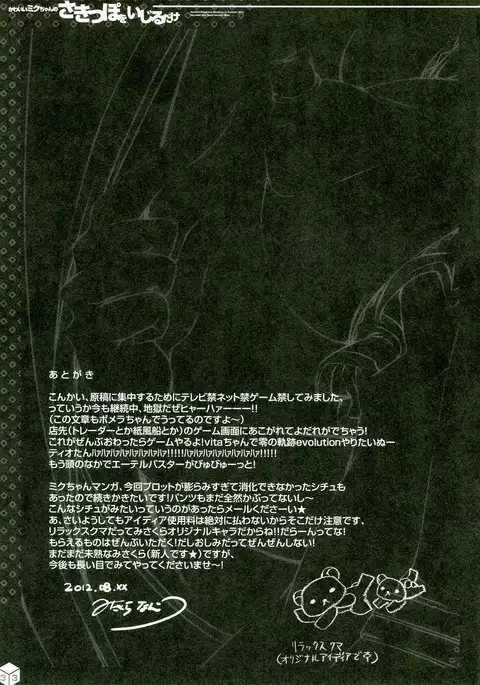 かわいいミクちゃんの
さきっぽをいじるだけ
あとがき
こんかい、原稿に集中するためにテレビ禁ネット禁ゲーム禁してみました、
っていうか今も継続中、地獄だぜヒャーハァーーー!!
(この文章もポメラちゃんでうってるのですよ〜)
店先(トレーダーとか紙風船とか)のゲーム画面にあこがれてよだれがでちゃう!
これがぜんぶおわったらゲームやるよ!vitaちゃんで零の軌跡evolutionやりたいぬー
もう頭のなかでエーテルバスターがびゅびゅーっと!
ミクちゃんマンガ、今回プロットが膨らみすぎて消化できなかったシチュも
あったので続きかきたいです!パンツもまだ全然かぶってないし〜
こんなシチュがみたいっていうのがあったらメールくださーい★
あ、さいようしてもアイディア使用料は絶対に払わないからそこだけ注意です、
リラックスクマだってみさくらオリジナルキャラだからね!!だらーんってな!
もらえるものはぜんぶいただく!だしおしみだってぜんぜんしない!
まだまだ未熟なみさくら(新人です★)ですが、
今後も長い目でみてやってくださいませ〜!
2012.08.XX
リラックスクマ
(オリジナルアイディアです)
33